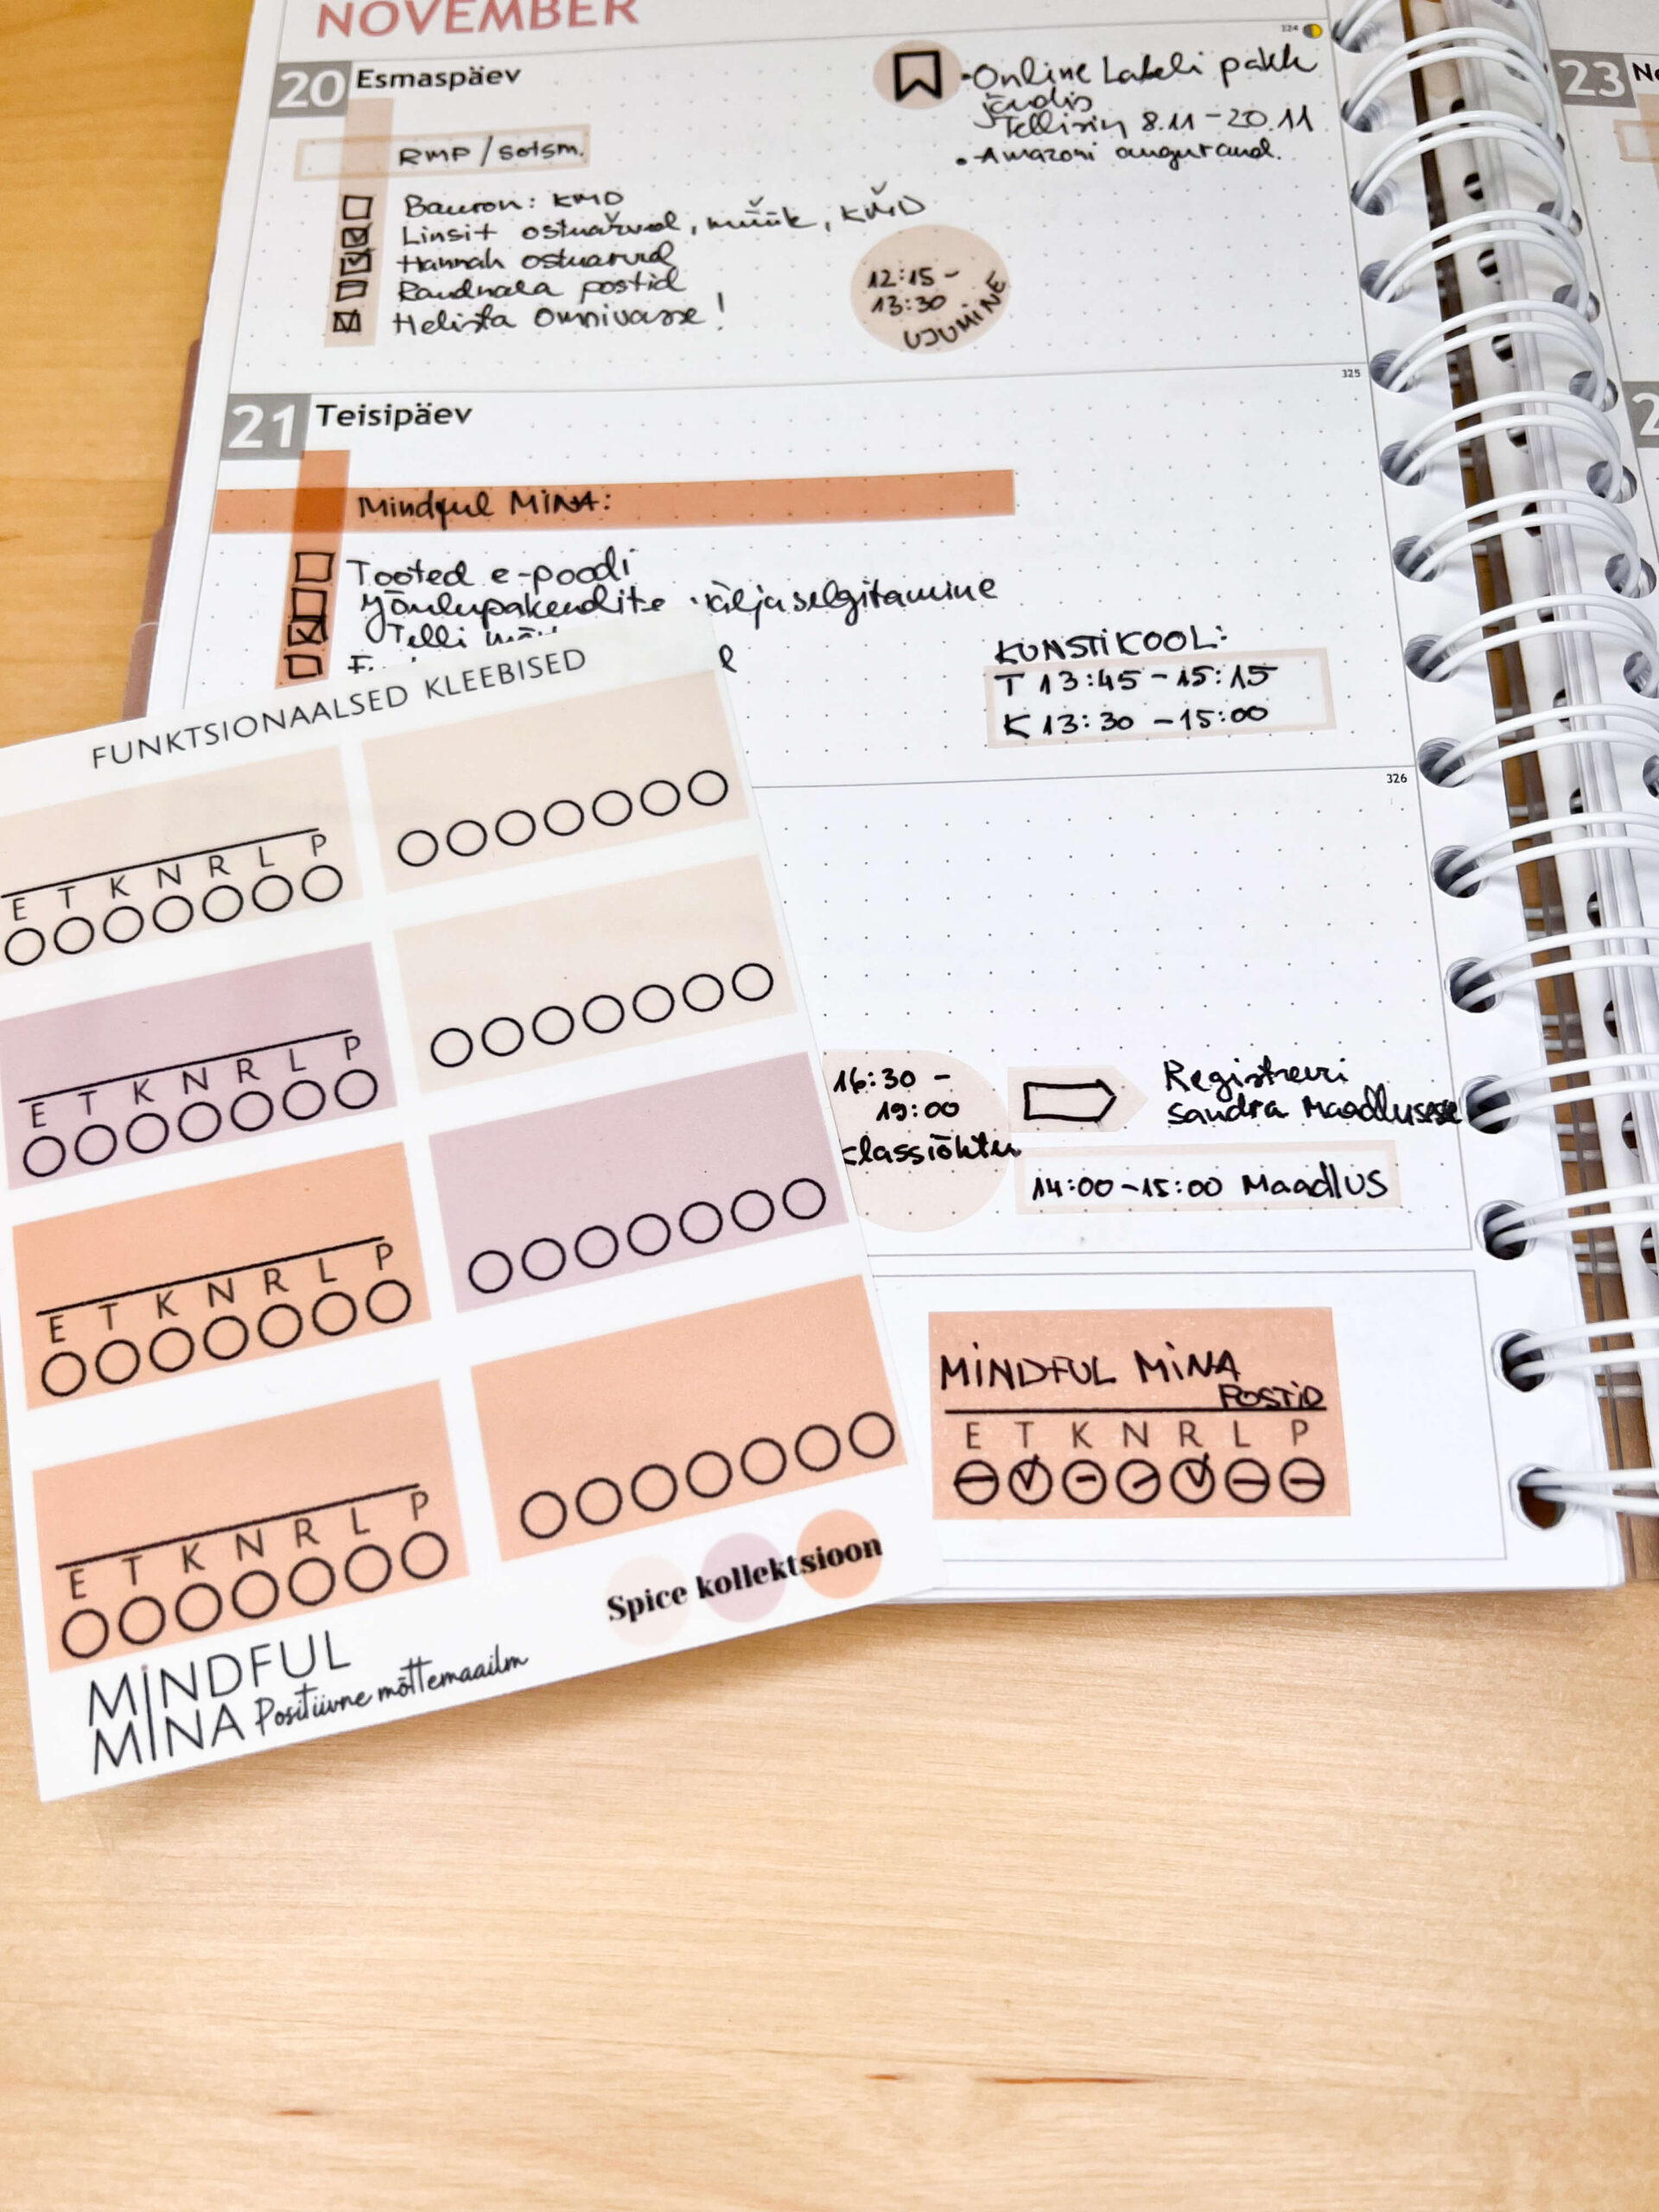 NOVEMBER
324
20 Esmaspäev
Online Labeli pakk
jõudis
Tellisin 8.11-20.11
• Amazoni auguraud.
RMP / Sotsm.
Bauron: KMD
Linsit ostuarved, müük, KMD
Hannah ostuarved
Raudnaela postid
Helista Omnivasse!
12:15 -
13:30
UJUMINE
325
21 Teisipäev
Mindful MINA:
Tooted e-poodi
Jõulupakendite väljaselgitamine
Telli
KUNSTIKOOL:
T 13:45-15:15
K 13:30-15:00
326
16:30 -
19:00
klassiõhtu
Registreeri
Sandra Maadlusesse
14:00-15:00 Maadlus
MINDFUL MINA
POSTID
E T K N R L P
23
FUNKTSIONAALSED KLEEBISED
E T K N R L P
E T K N R L P
E T K N R L P
E T K N R L P
Spice kollektsioon
MINDFUL
MINA Positiivne mõttemaailm